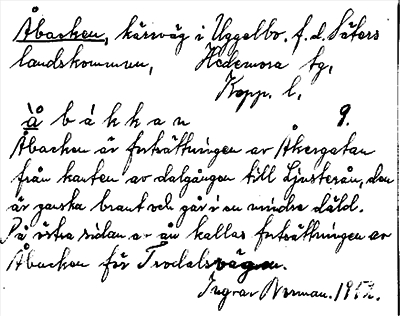 Åbacken, körväg i Uggelbo. f.d. Säters
landskommun, Hedemora tg,
Kopp. l,
å b á k k a n 9.
Åbacken är fortsättningen av Åkergatan
från kanten av dalgången till Ljusterån, den
är ganska brant och går i en mindre däld.
På östra sidan av ån kallas fortsättningen av
Åbacken för Trodalsvägen.
Ingvar Norman. 1952.